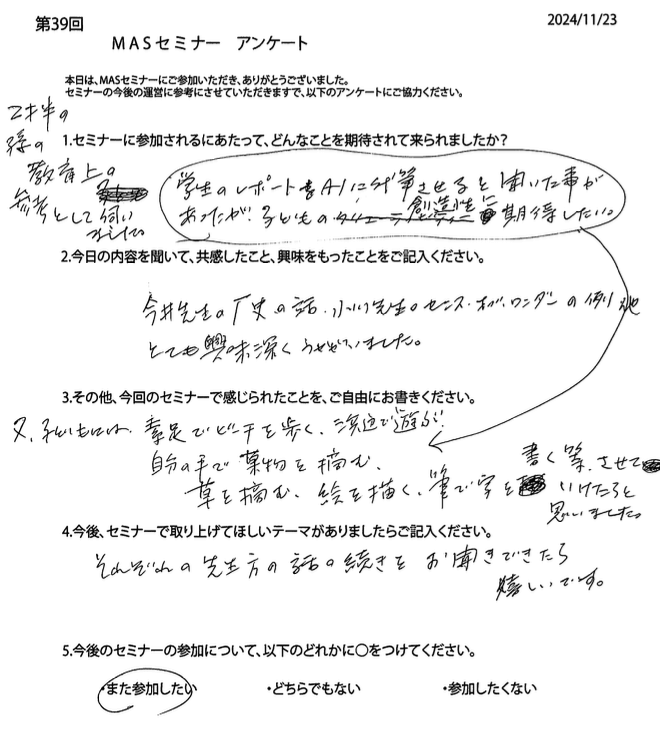 第39回
2024/11/23
MASセミナー アンケート
本日は、MASセミナーにご参加いただき、ありがとうございました。
セミナーの今後の運営に参考にさせていただきますで、以下のアンケートにご協力ください。
2才半の
孫の
教育上の
参考として伺い
ました
1.セミナーに参加されるにあたって、どんなことを期待されて来られましたか?
学生のレポートをAIに代筆させると聞いた事が
あったが、子どもの創造性に期待したい。
2.今日の内容を聞いて、共感したこと、興味をもったことをご記入ください。
今井先生の 史の話、小川先生のセンス・オブ・ワンダーの例 他
とても興味深く うかがいました。
3.その他、今回のセミナーで感じられたことを、ご自由にお書きください。
又、子どもには、素足でビーチを歩く、浜辺で遊ぶ、
自分の手で果物を摘む、
草を摘む、絵を描く、筆で字を
書く等、させて
いけたらと
思いました。
4.今後、セミナーで取り上げてほしいテーマがありましたらご記入ください。
それぞれの先生方の話の続きをお聞きできたら
嬉しいです。
5.今後のセミナーの参加について、以下のどれかに〇をつけてください。
・また参加したい ・どちらでもない ・参加したくない